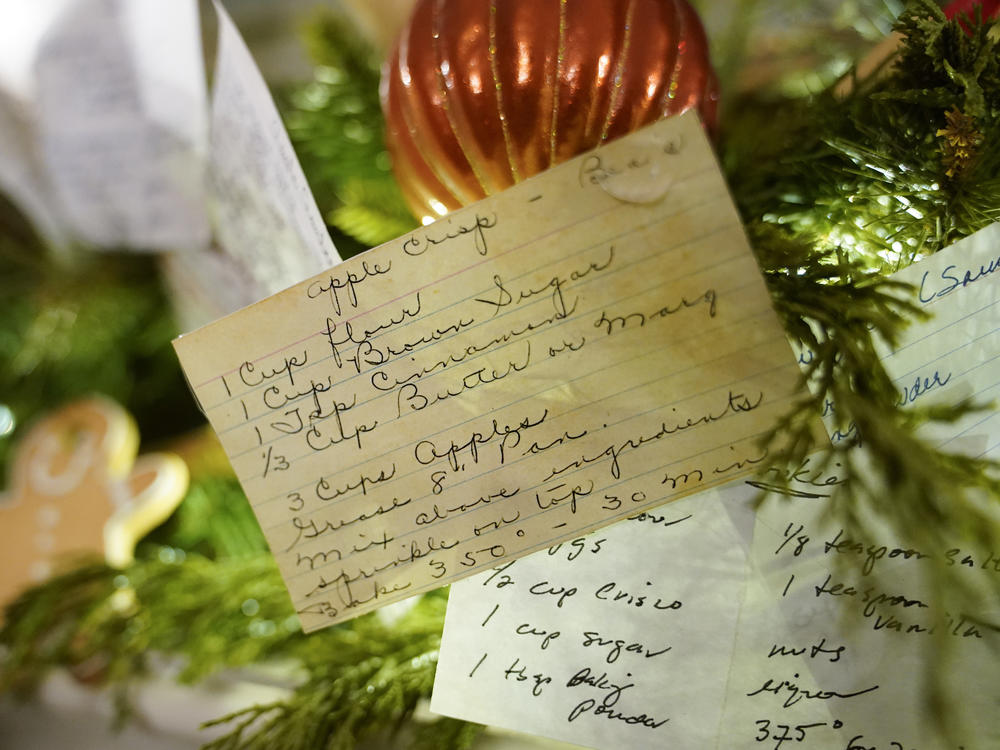 apple Crisp -
1 Cup flour
1 Cup Brown Sugar
1 Tsp Cinnamon
1/3 Cup Butter or Marg
3 Cups Apples
Grease 8" Pan.
Mix above ingredients
sprinkle on top
Bake 350° - 30 Min
1/2 cup Crisco
1 cup sugar
1 tbsp Baking
Powder
1/8 teaspoon salt
1 teaspoon
vanilla
nuts
375°